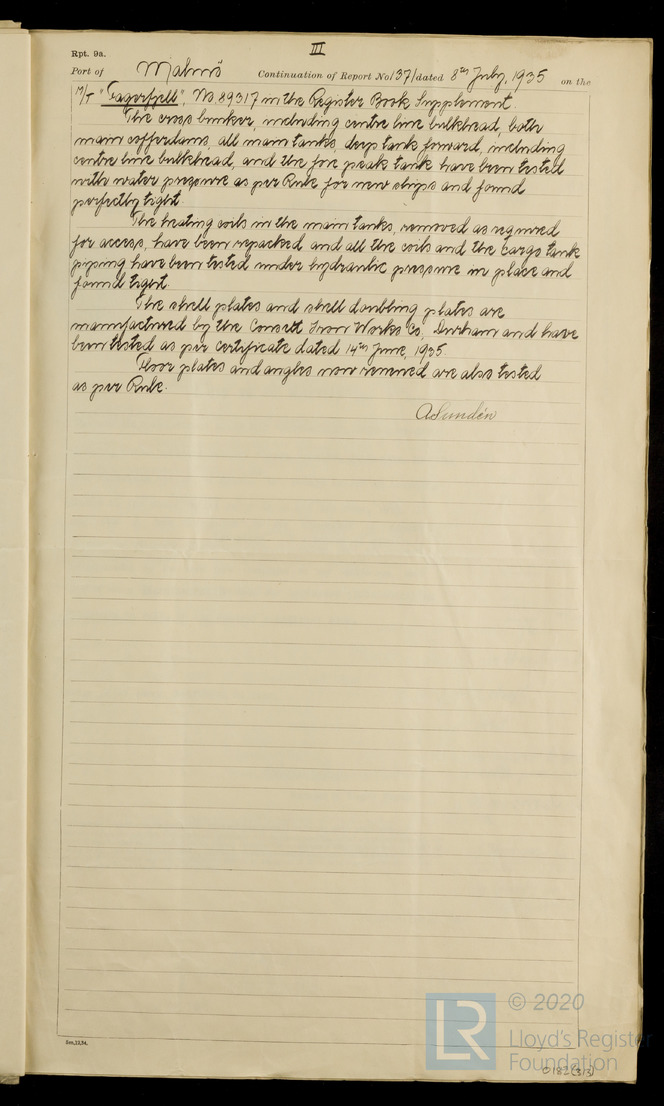 Rpt. 9a.
III
Port of Malmö Continuation of Report No 1371 dated 8th July, 1935 on the
M/T "Fagerfjell", No. 89317 in the Register Book Supplement.
The cross bunker, including centre line bulkhead, both
main cofferdams, all main tanks, deep tank forward, including
centre line bulkhead, and the fore peak tank have been tested
with water pressure as per Rule for new ships and found
perfectly tight.
The heating coils in the main tanks, removed as required
for access, have been repacked and all the coils and the cargo tank
piping have been tested under hydraulic pressure in place and
found tight.
The shell plates and shell doubling plates are
manufactured by the Consett Iron Works Co, Durham and have
been tested as per certificate dated 14th June, 1935
Floor plates and angles now renewed are also tested
as per Rule.
A Sundén
© 2020
LR
Lloyd's Register
Foundation
0182 (3/3)